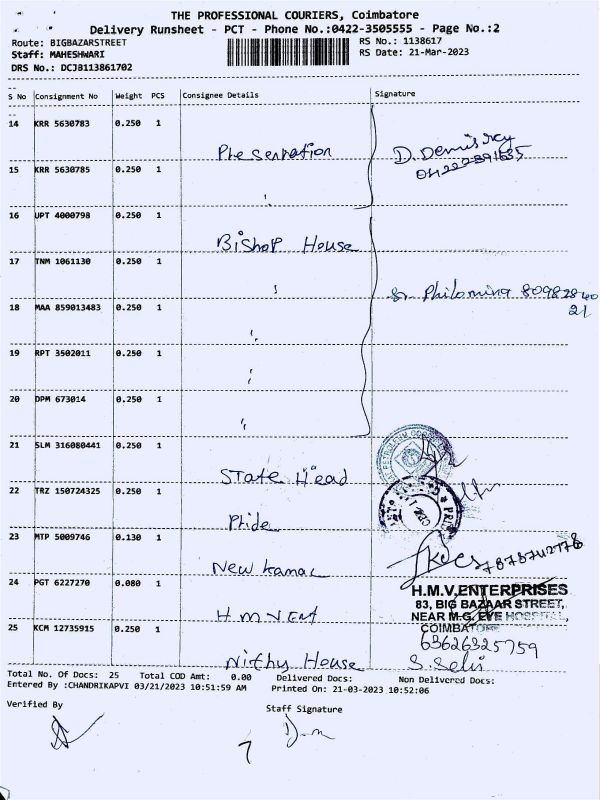 THE PROFESSIONAL COURIERS, Coimbatore
Delivery Runsheet - PCT - Phone No.:0422-3505555 - Page No.:2
Route: BIGBAZARSTREET
Staff: MAHESHWARI
DRS No.: DCJB113861702
RS No.: 1138617
RS Date: 21-Mar-2023
S No Consignment No Weight PCS Consignee Details Signature
14 KRR 5630783 0.250 1
Presentation D. Demisrey
15 KRR 5630785 0.250 1
16 UPT 4000798 0.250 1
Bishop House
17 TNM 1061130 0.250 1
Sr. Philomina 80982840
21
18 MAA 859013483 0.250 1
19 RPT 3502011 0.250 1
20 DPM 673014 0.250 1
21 SLM 316080441 0.250 1
State Head
22 TRZ 150724325 0.250 1
Pride
23 MTP 5009746 0.130 1
New Kamal
24 PGT 6227270 0.080 1
H.M.V.ENTERPRISES
83, BIG BAZAAR STREET,
NEAR M.G. EYE HOSPITAL,
COIMBATORE
H.M.V Ent
25 KCM 12735915 0.250 1
63626325759
Nithy House S. Selvi
Total No. Of Docs: 25 Total COD Amt: 0.00 Delivered Docs: Non Delivered Docs:
Entered By :CHANDRIKAPVI 03/21/2023 10:51:59 AM Printed On: 21-03-2023 10:52:06
Verified By
Staff Signature
7